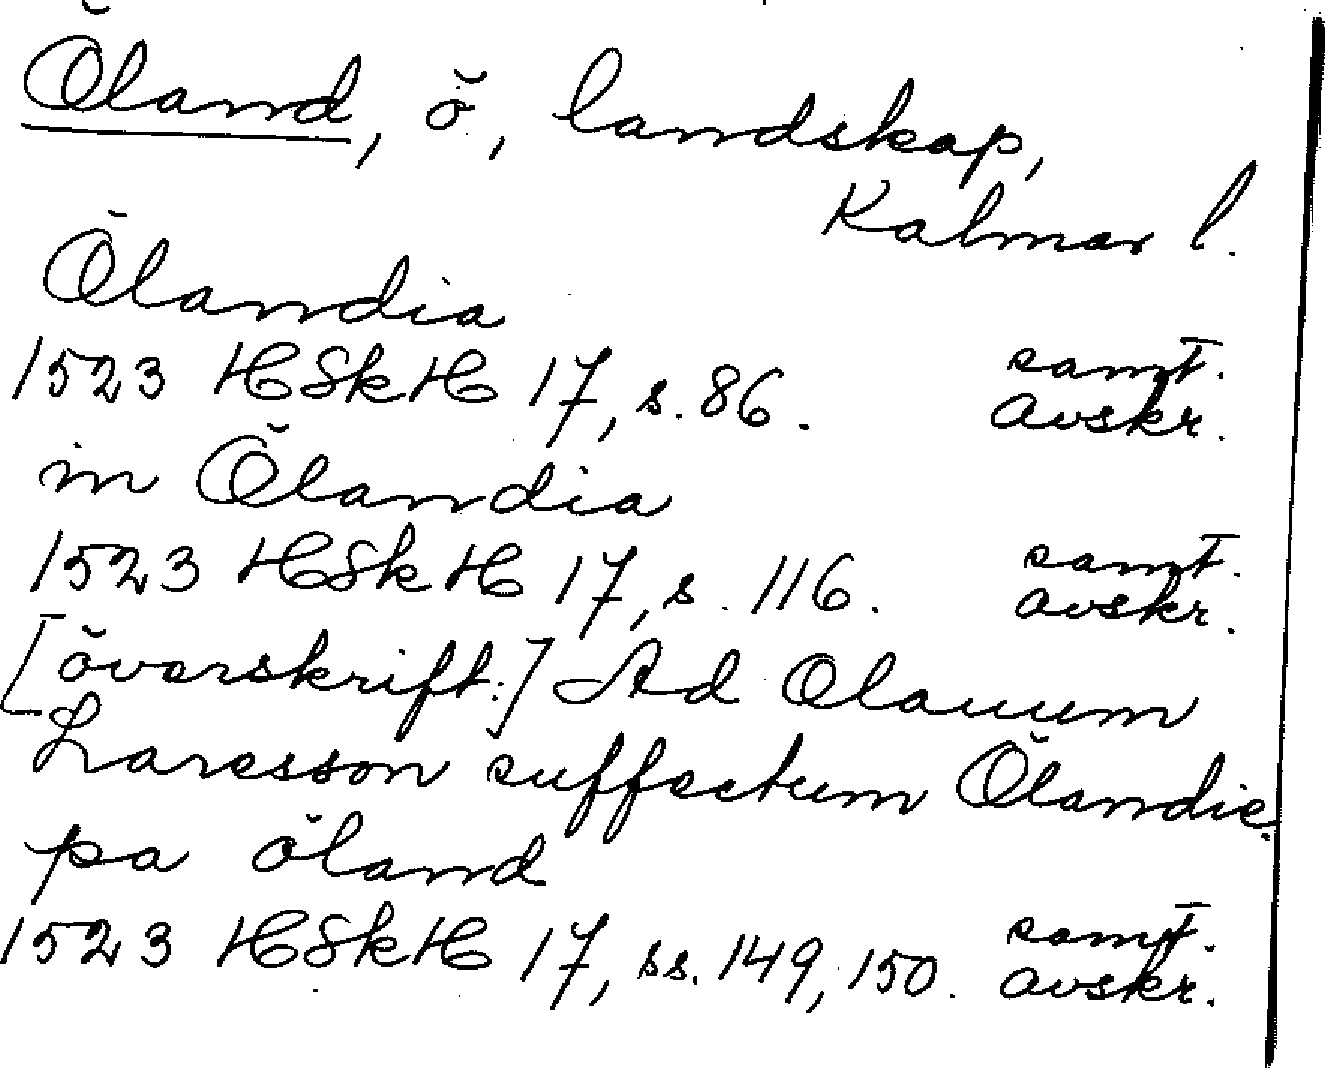 Öland, ö, landskap,
Kalmar l.
Ölandia
1523 HSkH 17, s. 86. samt. avskr.
in Ölandia
1523 HSkH 17, s. 116. samt. avskr.
[överskrift:] Ad Olauum
Laresson suffectum Ölandie.
pa öland
1523 HSkH 17, ss. 149, 150. samt. avskr.